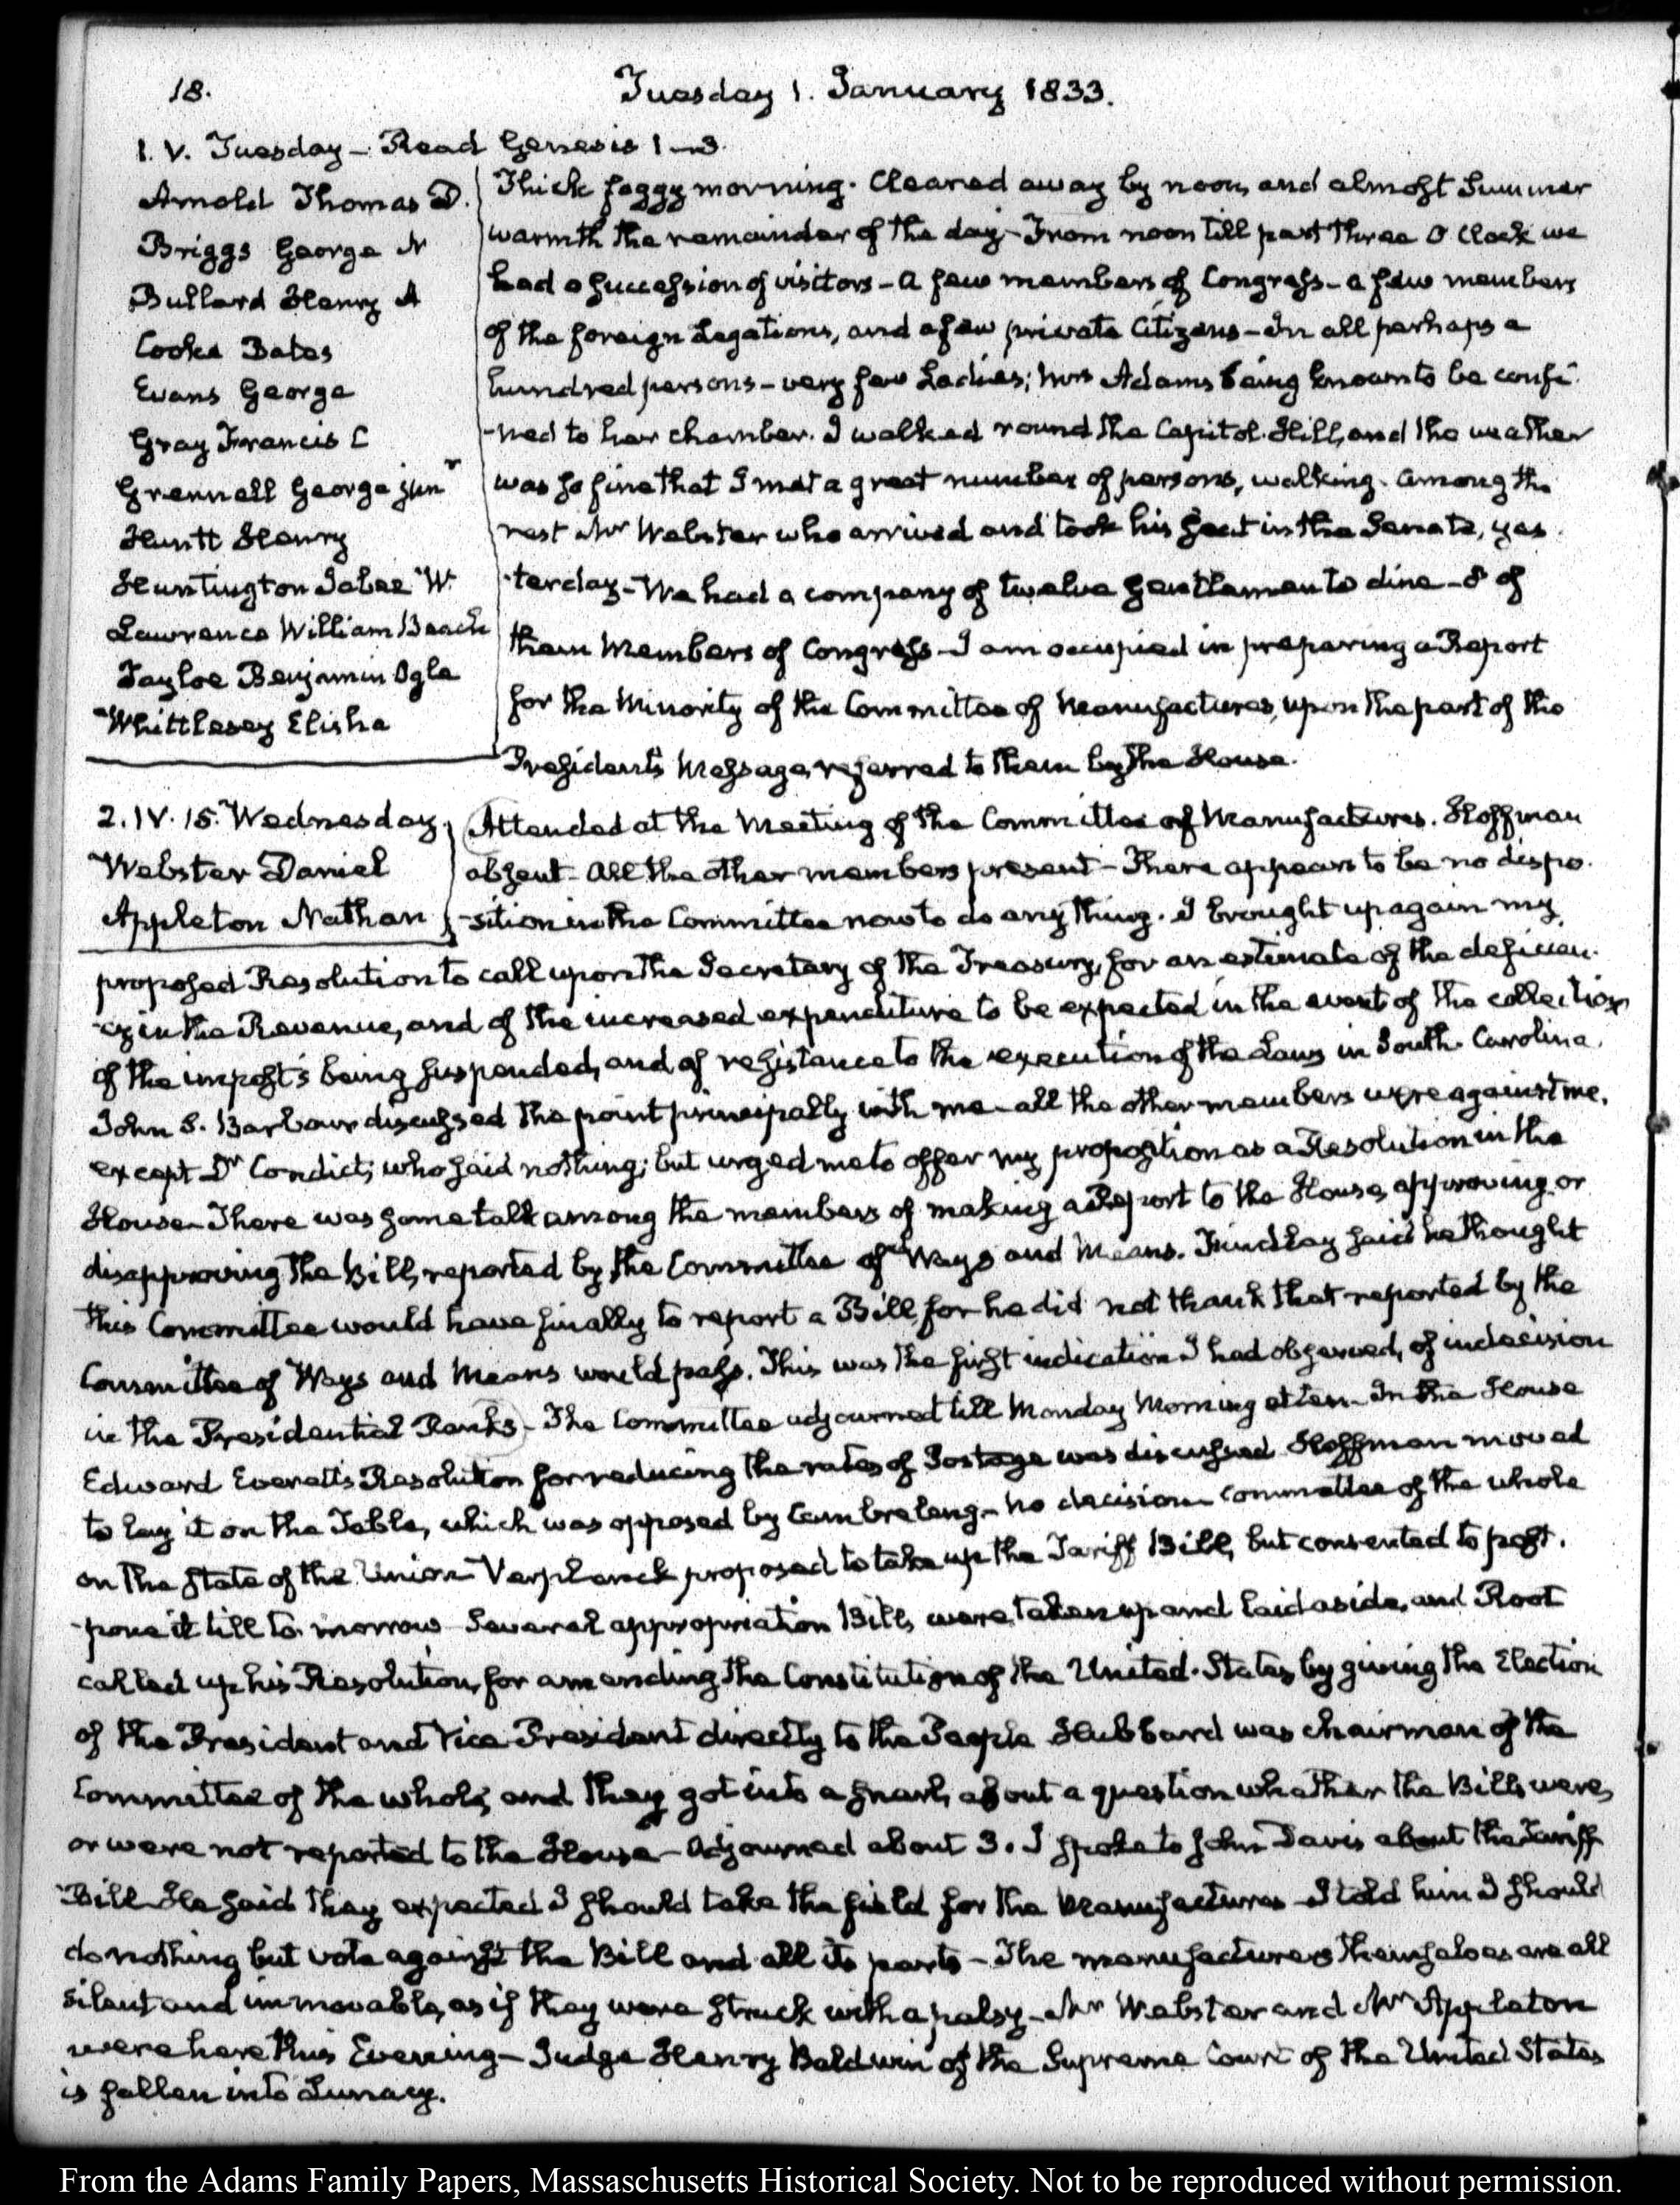 18.
Tuesday 1. January 1833.
1. V. Tuesday – Read Genesis 1–3.
Arnold Thomas D.
Briggs George N
Bullard Henry A
Cooke Bates
Evans George
Gray Francis C
Grennell George junr
Huntt Henry
Huntington Jabez W.
Lawrence William Beach
Tayloe Benjamin Ogle
Whittlesey Elisha
Thick foggy morning. Cleared away by noon, and almost Summer
warmth the remainder of the day – From noon till past three O'Clock we
had a succession of visitors – a few members of Congress – a few members
of the foreign Legations, and a few private Citizens – In all perhaps a
hundred persons – very few Ladies; Mrs Adams being known to be confi-
-ned to her chamber. I walked round the Capitol-Hill, and the weather
was so fine that I met a great number of persons, walking. Among the
rest Mr Webster who arrived and took his seat in the Senate, yes-
-terday – We had a company of twelve Gentlemen to dine – 8 of
them Members of Congress – I am occupied in preparing a Report
for the Minority of the Committee of Manufactures, upon the part of the
President's Message, referred to them by the House.
2. IV. 15. Wednesday.
Webster Daniel
Appleton Nathan
Attended at the Meeting of the Committee of Manufactures. Hoffman
absent – All the other members present – There appears to be no dispo-
-sition in the Committee now to do any thing. I brought up again my
proposed Resolution to call upon the Secretary of the Treasury, for an estimate of the deficien-
-cy in the Revenue, and of the increased expenditure to be expected in the event of the collection
of the impost's being suspended, and of resistance to the execution of the Laws in South-Carolina.
John S. Barbour discussed the point principally with me – all the other members were against me,
except Dr Condict, who said nothing; but urged me to offer my proposition as a Resolution in the
House – There was some talk among the members of making a Report to the House, approving or
disapproving the Bill, reported by the Committee of Ways and Means. Findlay said he thought
this Committee would have finally to report a Bill, for he did not think that reported by the
Committee of Ways and Means would pass. This was the first indication I had observed, of indecision
in the Presidential Ranks – The Committee adjourned till Monday Morning at ten – In the House
Edward Everett's Resolution for reducing the rates of Postage was discussed Hoffman moved
to lay it on the Table, which was opposed by Cambreleng – no decision – Committee of the whole
on the state of the Union – Verplanck proposed to take up the Tariff Bill, but consented to post-
-pone it till to-morrow – Several appropriation Bills were taken up and laid aside, and Root
called up his Resolution, for amending the Constitution of the United-States, by giving the Election
of the President and Vice-President directly to the People Hubbard was chairman of the
Committee of the whole, and they got into a snarl, about a question whether the Bills were,
or were not reported to the House – Adjourned about 3. I spoke to John Davis about the Tariff
Bill – He said they expected I should take the field for the Manufactures – I told him I should
do nothing but vote against the Bill and all its parts – The manufacturers themselves are all
silent and immovable, as if they were struck with a palsy – Mr Webster and Mr Appleton
were here this Evening – Judge Henry Baldwin of the Supreme Court of the United States
is fallen into Lunacy.
From the Adams Family Papers, Massachusetts Historical Society. Not to be reproduced without permission.